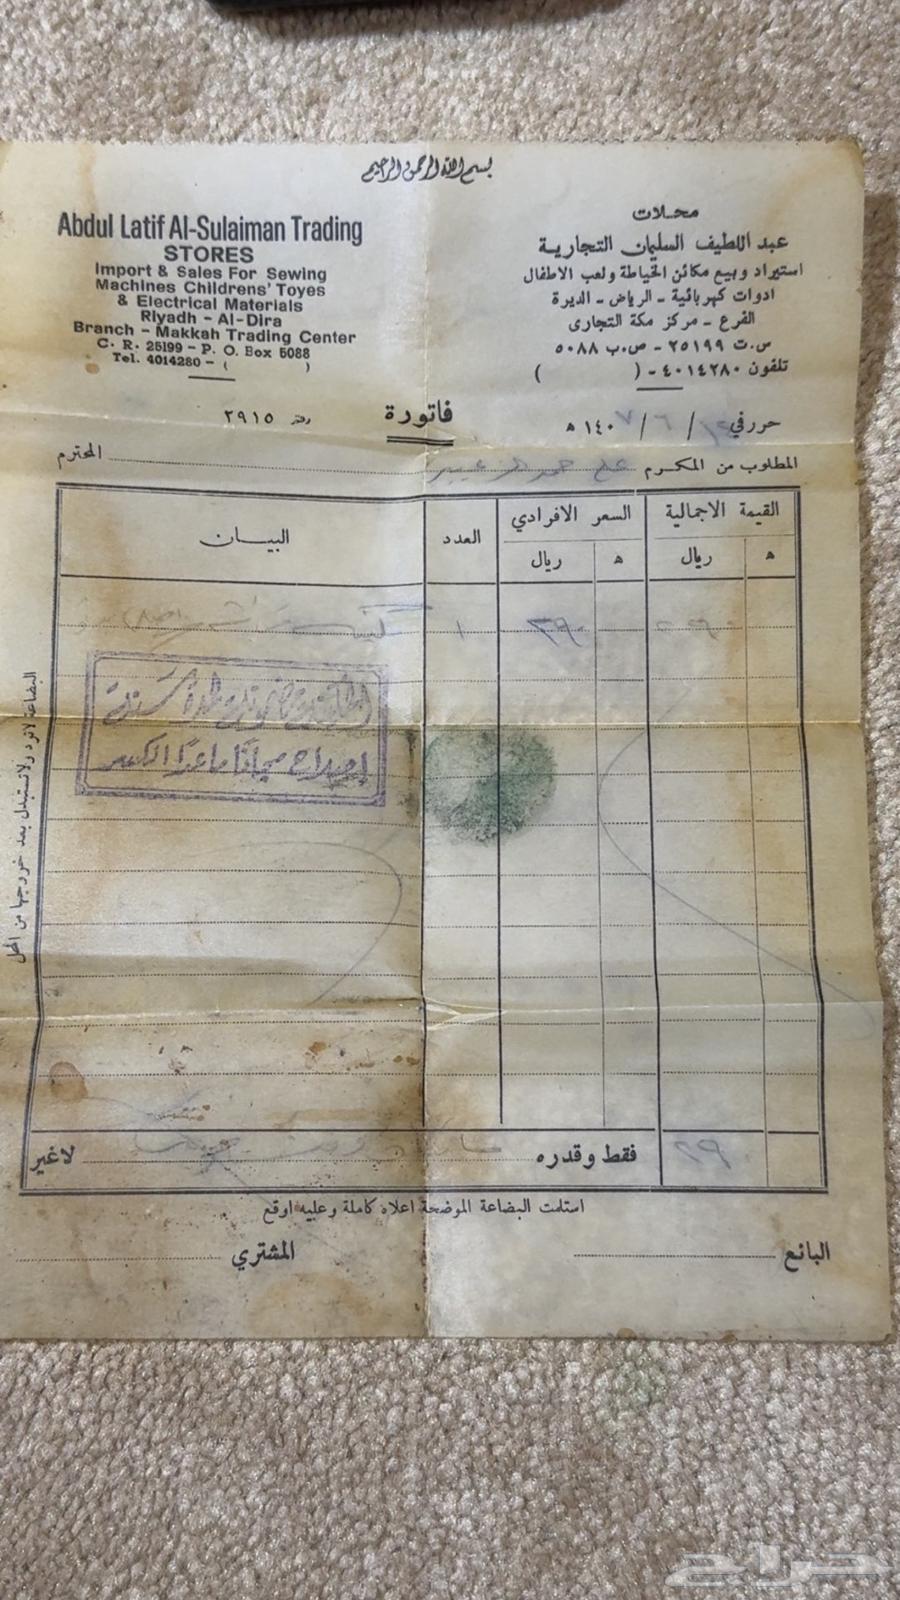 بسم الله الرحمن الرحيم
Abdul Latif Al-Sulaiman Trading
STORES
Import & Sales For Sewing
Machines Childrens' Toyes
& Electrical Materials
Riyadh - Al-Dira
Branch - Makkah Trading Center
C. R. 25199 - P. O. Box 5088
Tel. 4014280 - ( )
محلات
عبد اللطيف السليمان التجارية
استيراد وبيع مكائن الخياطة ولعب الاطفال
ادوات كهربائية - الرياض - الديرة
الفرع - مركز مكة التجارى
س.ت ٢٥١٩٩ - ص.ب ٥٠٨٨
تلفون ٤٠١٤٢٨٠ - ( )
فاتورة
رقم ٢٩١٥
حرر في / ٦ / ١٤٠٧ ه
المطلوب من المكرم علي المحترم
القيمة الاجمالية السعر الافرادي العدد البيـــان
ه ريال ه ريال
١ ٢٩٠
اصلاح مجانا ماعدا الكسر
البضاعة لاترد ولاتستبدل بعد خروجها من المحل
فقط وقدره لاغير
استلمت البضاعة الموضحة اعلاه كاملة وعليه اوقع
البائع المشتري
حراج